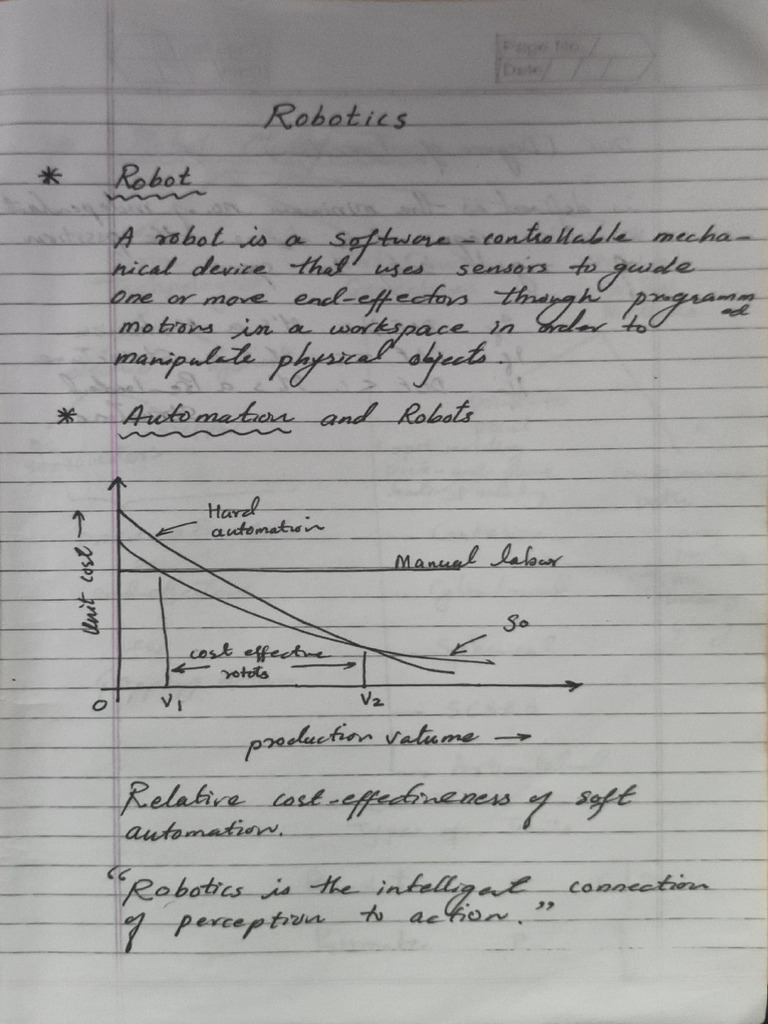 Page No
Date / / /
Robotics
* Robot
A robot is a software-controllable mecha-
nical device that uses sensors to guide
one or more end-effectors through programmed
motions in a workspace in order to
manipulate physical objects.
* Automation and Robots
Hard
automation
Manual labour
Unit cost →
So
cost effective
robots
O V1 V2
production volume →
Relative cost-effectiveness of soft
automation.
"Robotics is the intelligent connection
of perception to action."